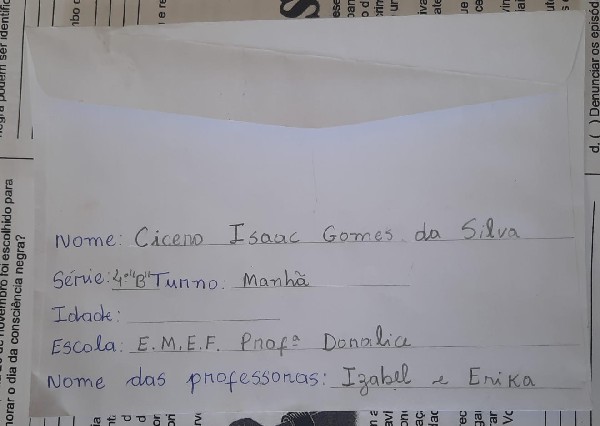 Nome: Cicero Isaac Gomes da Silva
Série: 4º "B" Turno: Manhã
Idade:
Escola: E.M.E.F. Profª Donalice
Nome das professoras: Izabel e Erika
d. ( ) Denunciar os episód
negra podem ser identific
de novembro foi escolhido para
norar o dia da consciência negra?